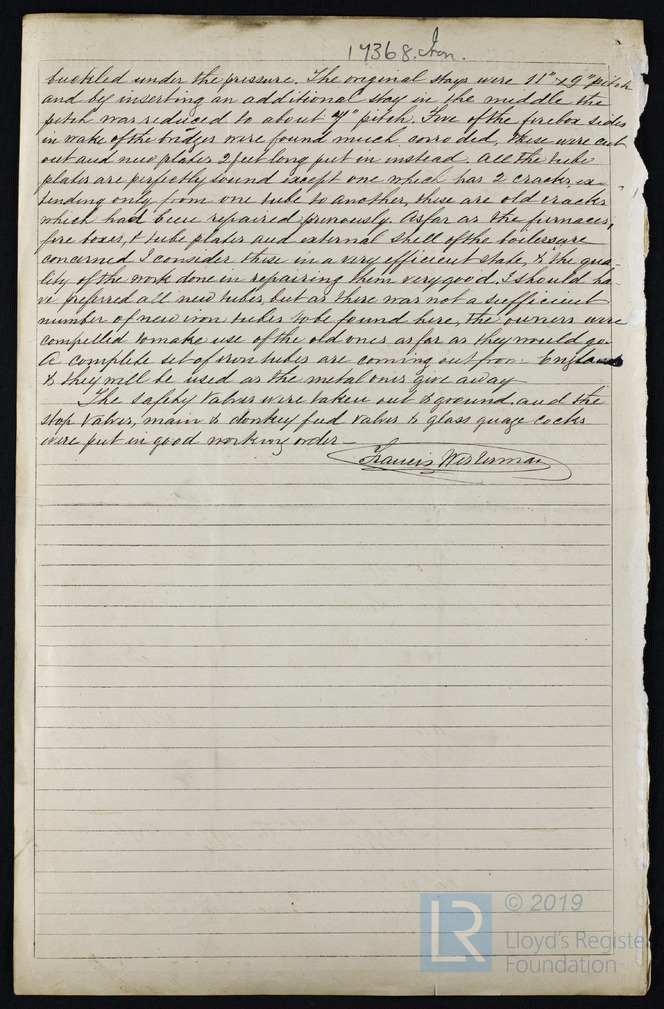 17368. Iron.
buckled under the pressure. The original stays were 11" x 9" pitch
and by inserting an additional stay in the middle the
pitch was reduced to about 7" pitch. Five of the firebox sides
in wake of the bridges were found much corroded, these were cut
out and new plates 2 feet long put in instead. All the tube
plates are perfectly sound except one which has 2 cracks, ex-
tending only from one tube to another, these are old cracks
which had been repaired previously. As far as the furnaces,
fire boxes, & tube plates and external shell of the boilers are
concerned I consider these in a very efficient state, & the qua-
lity of the work done in repairing them very good. I should ha-
ve preferred all new tubes, but as there was not a sufficient
number of new iron tubes to be found here, the owners were
compelled to make use of the old ones as far as they would go.
A complete set of iron tubes are coming out from England
& they will be used as the metal ones give away
The safety valves were taken out & ground, and the
stop valves, main & donkey feed valves & glass guage cocks
were put in good working order —
Francis Westerman
© 2019
LR
Lloyd's Registe
Foundation